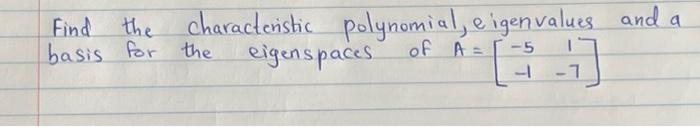 Find the characteristic polynomial, eigenvalues and a
basis for the eigenspaces of A = [-5 1
-1 -7]